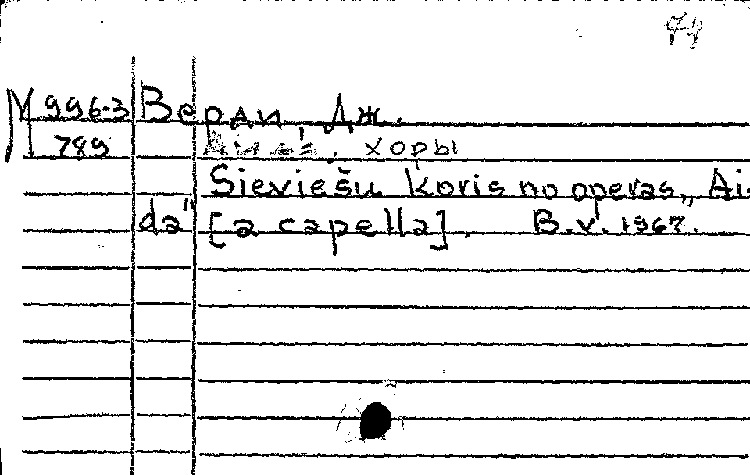 М 996-3 Верди, Дж.
789 Аида. хоры
Sieviešu koris no operas „Ai-
da" [a capella]. B.v. 1967.